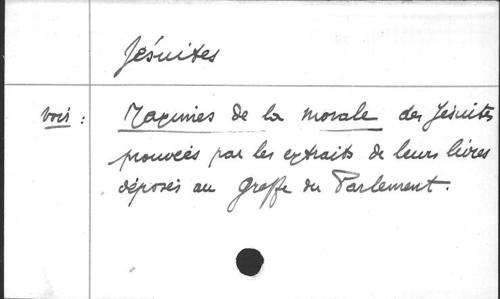 Jésuites
voir : Maximes de la morale des Jésuites
prouvées par les extraits de leurs livres
déposés au Greffe du Parlement.